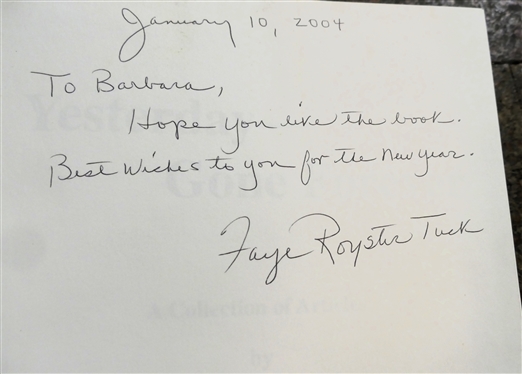 January 10, 2004
To Barbara,
Hope you like the book.
Best Wishes to you for the New Year.
Faye Royster Tuck
Yesterday
Gone
A Collection of
by